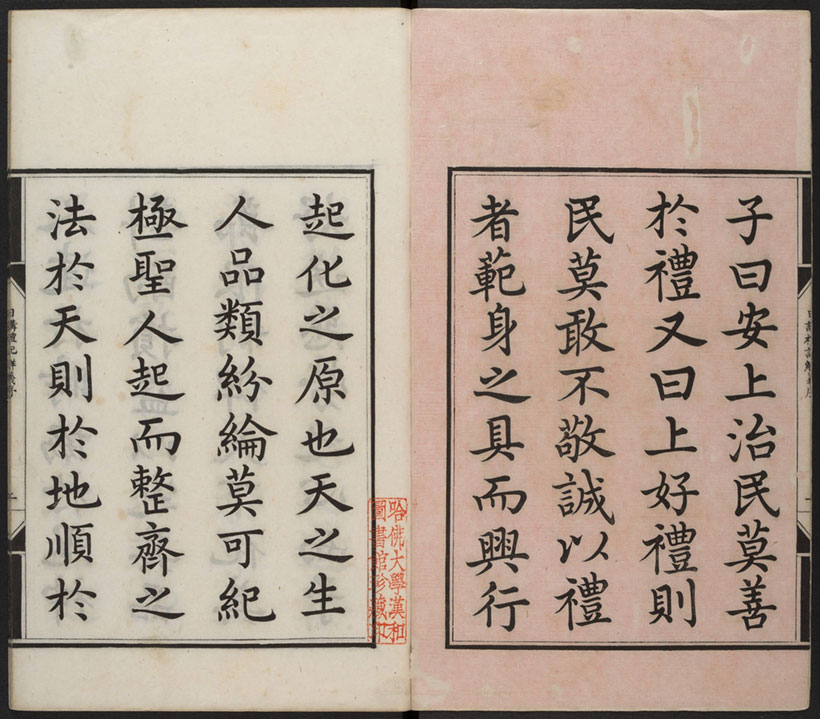 子曰安上治民莫善
於禮又曰上好禮則
民莫敢不敬誠以禮
者範身之具而興行
起化之原也天之生
人品類紛綸莫可紀
極聖人起而整齊之
法於天則於地順於
日講禮記解義序
哈佛大學漢和
圖書館珍藏印